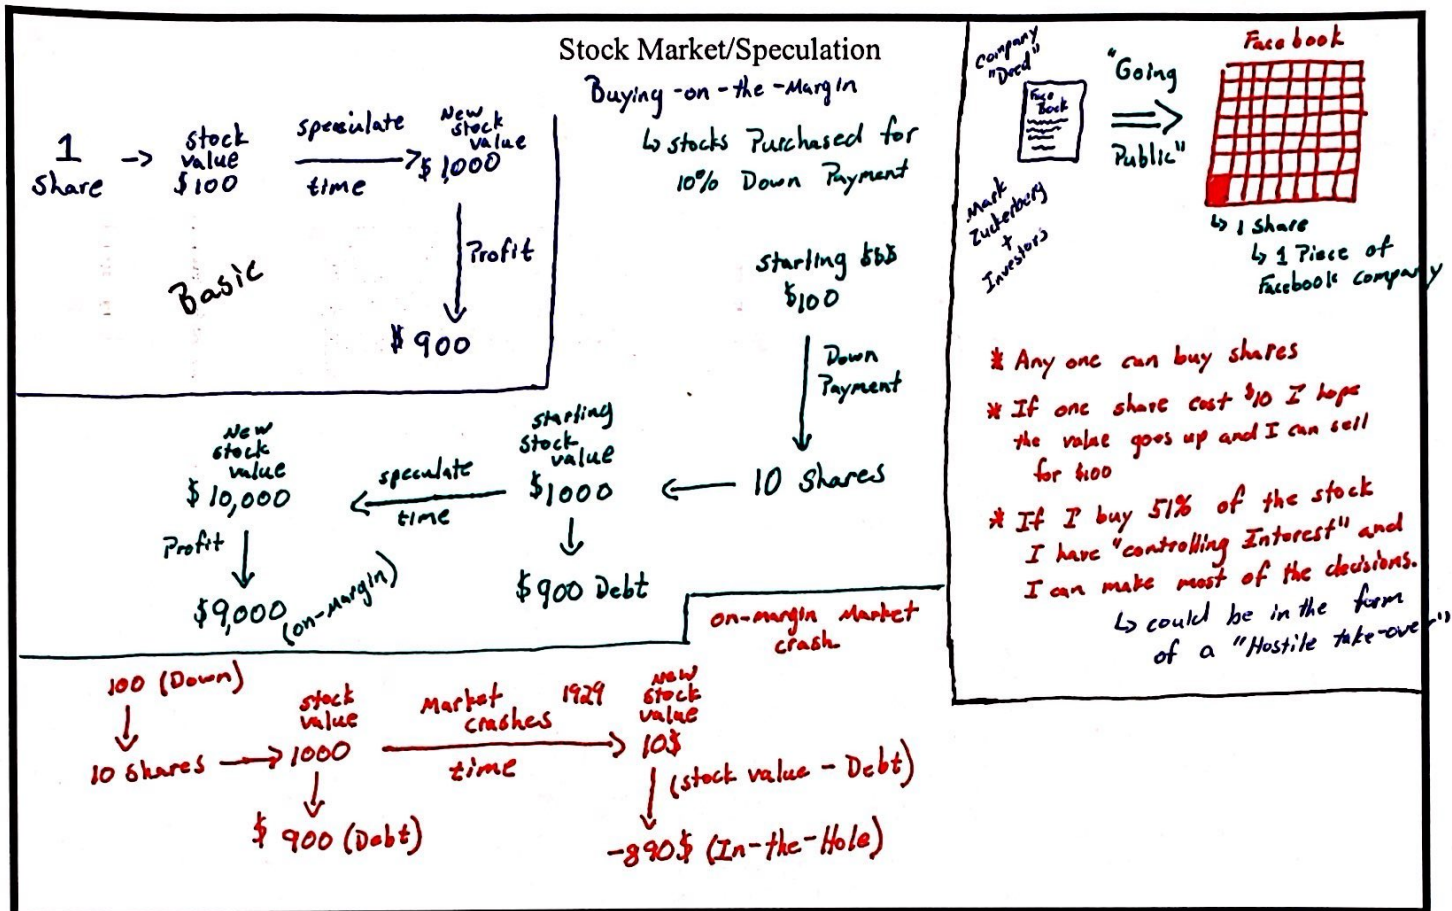 Stock Market/Speculation
1
Share
->
stock
value
$100
speculate
time
New
stock
value
$1,000
Profit
$900
Basic
Buying-on-the-Margin
↳ stocks Purchased for
10% Down Payment
starting $$$
$100
Down
Payment
10 Shares
starting
stock
value
$1000
$900 Debt
speculate
time
New
stock
value
$10,000
Profit
$9,000
(on-Margin)
on-margin Market
crash
100 (Down)
10 Shares
stock
value
1000
$900 (Debt)
Market
crashes 1929
time
New
stock
value
10$
(stock value - Debt)
-890$ (In-the-Hole)
Company
"Deed"
Face
Book
Mark
Zuckerberg
+
Investors
"Going
Public"
Facebook
↳ 1 Share
↳ 1 Piece of
Facebook company
* Any one can buy shares
* If one share cost $10 I hope
the value goes up and I can sell
for $100
* If I buy 51% of the stock
I have "controlling Interest" and
I can make most of the decisions.
↳ could be in the form
of a "Hostile take-over"